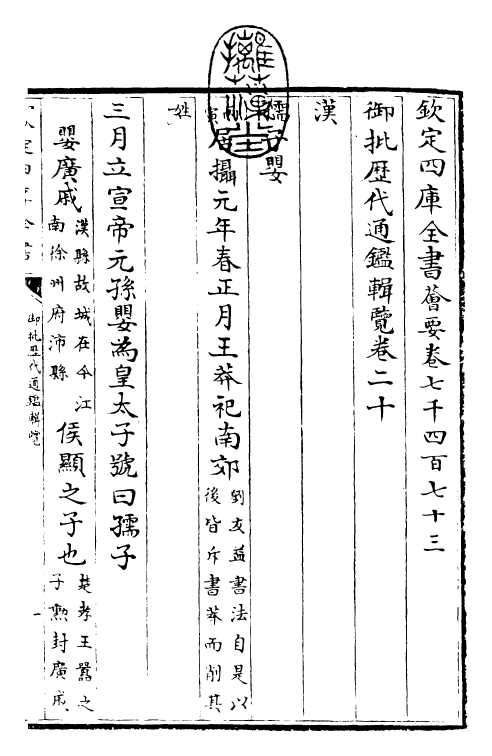 欽定四庫全書薈要卷七千四百七十三
御批歴代通鑑輯覽卷二十
漢
孺子嬰
居攝元年春正月王莽祀南郊劉友益書法自是以後皆斥書莽而削其
姓
三月立宣帝元孫嬰為皇太子號曰孺子
嬰廣戚漢縣故城在今江南徐州府沛縣侯顯之子也楚孝王囂之子勲封廣戚
御批歴代通鑑輯覽
一